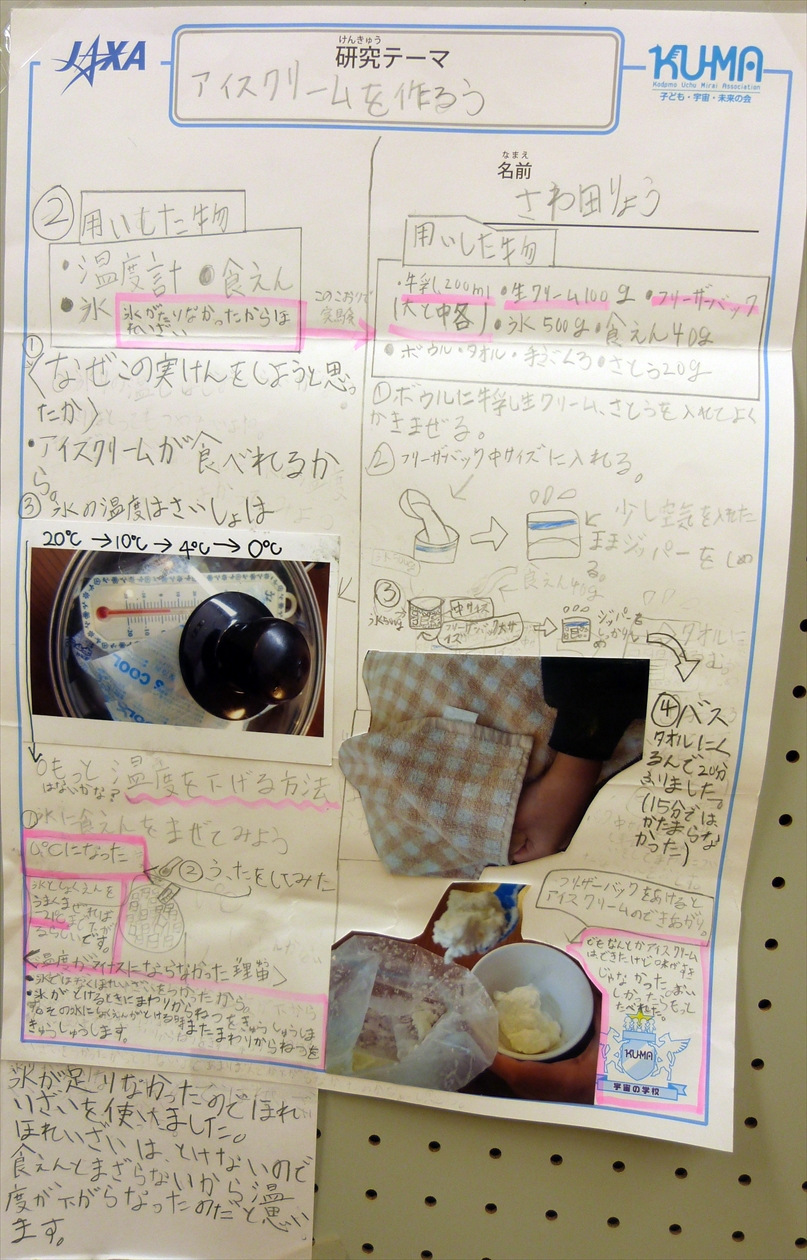 JAXA
けんきゅう
研究テーマ
アイスクリームを作ろう
KU-MA
Kodomo Uchu Mirai Association
子ども・宇宙・未来の会
なまえ
名前
さわ田りょう
②用いした物
・温度計 ●食えん
●氷
氷がたりなかったからほ
れいざい
このこおりで
実験
①
〈なぜこの実けんをしようと思っ
たか〉
・アイスクリームが食べれるか
ら。
③氷の温度はさいしょは
20℃→10℃→4℃→0℃
○もっと温度を下げる方法
はないかな?
①氷に食えんをまぜてみよう
0℃になった
②うたをしてみた
氷としょくえんを
うまくまぜれば
るらしいです。
〈温度がマイナスにならなかった理由〉
・氷ではなくほれいざいをつかったから。
・氷がとけるときにまわりからねつをきゅうしゅうしま
す。その氷にしょくえんがとける時またまわりからねつを
きゅうしゅうします。
氷が足りなかったのでほれ
いざいを使いました。
ほれいざいは、とけないので
食えんとまざらないから温
度が下がらなったのだと思い
ます。
用いした物
・牛乳200ml ●生クリーム100g ●フリーザーバック
(大と中各1) ●氷500g ●食えん40g
●ボウル・タオル・手ぶくろ●さとう20g
①ボウルに牛乳生クリーム、さとうを入れてよく
かきまぜる。
②フリーザバック中サイズに入れる。
少し空気を入れた
ままジッパーをしめ
る。
食えん40g
③
氷500g
中サイズ
フリーザーバック大サ
イズ
ジッパーを
しっかりし
め
タオルに
④バス
タオルにく
るんで20分
ふりました。
(15分では
かたまらな
かった)
フリーザーバックをあけると
アイスクリームのできあがり。
○なんとかアイスクリーム
はできたけど味がすき
じゃなかった。おい
しかったらもっと
たべれた。
KUMA
宇宙の学校